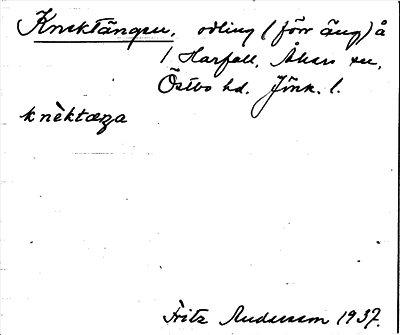 Knektängen, odling (förr äng) å
1 Harfall, Åkers sn,
Östbo hd. Jönk. l.
knèktæŋa
Fritz Andersson 1937.